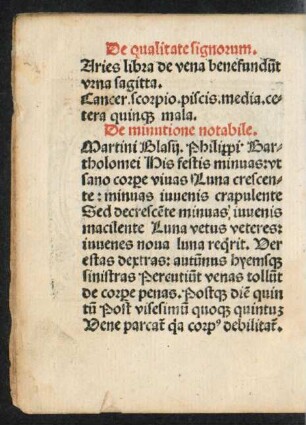 De qualitate signorum.
Aries libra de vena benefundūt
vrna sagitta.
Cancer.scorpio.piscis.media.ce-
tera quinqꝫ mala.
De minutione notabile.
Martini Blasij. Philippi Bar-
tholomei His festis minuas:vt
sano corpe viuas Luna crescen-
te: minuas iuuenis crapulente
Sed decrescēte minuas iuuenis
macilente Luna vetus veteres:
iuuenes noua luna reqrit. Ver
estas dextras: autūnus hyemsqꝫ
sinistras Percutiūt venas tollūt
de corpe penas. Postqꝫ diē quin
tū Post visesimū quoqꝫ quintuꝫ
Vene parcat qa corpꝰ debilitat.